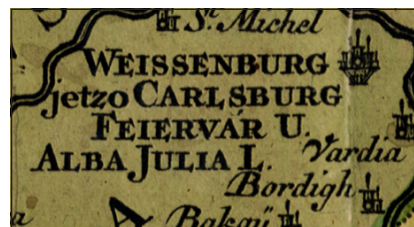 St. Michel
WEISSENBURG
jetzo CARLSBURG
FEIERVÁR U.
ALBA JULIA L.
Vardia
Bordigh
Bakaü